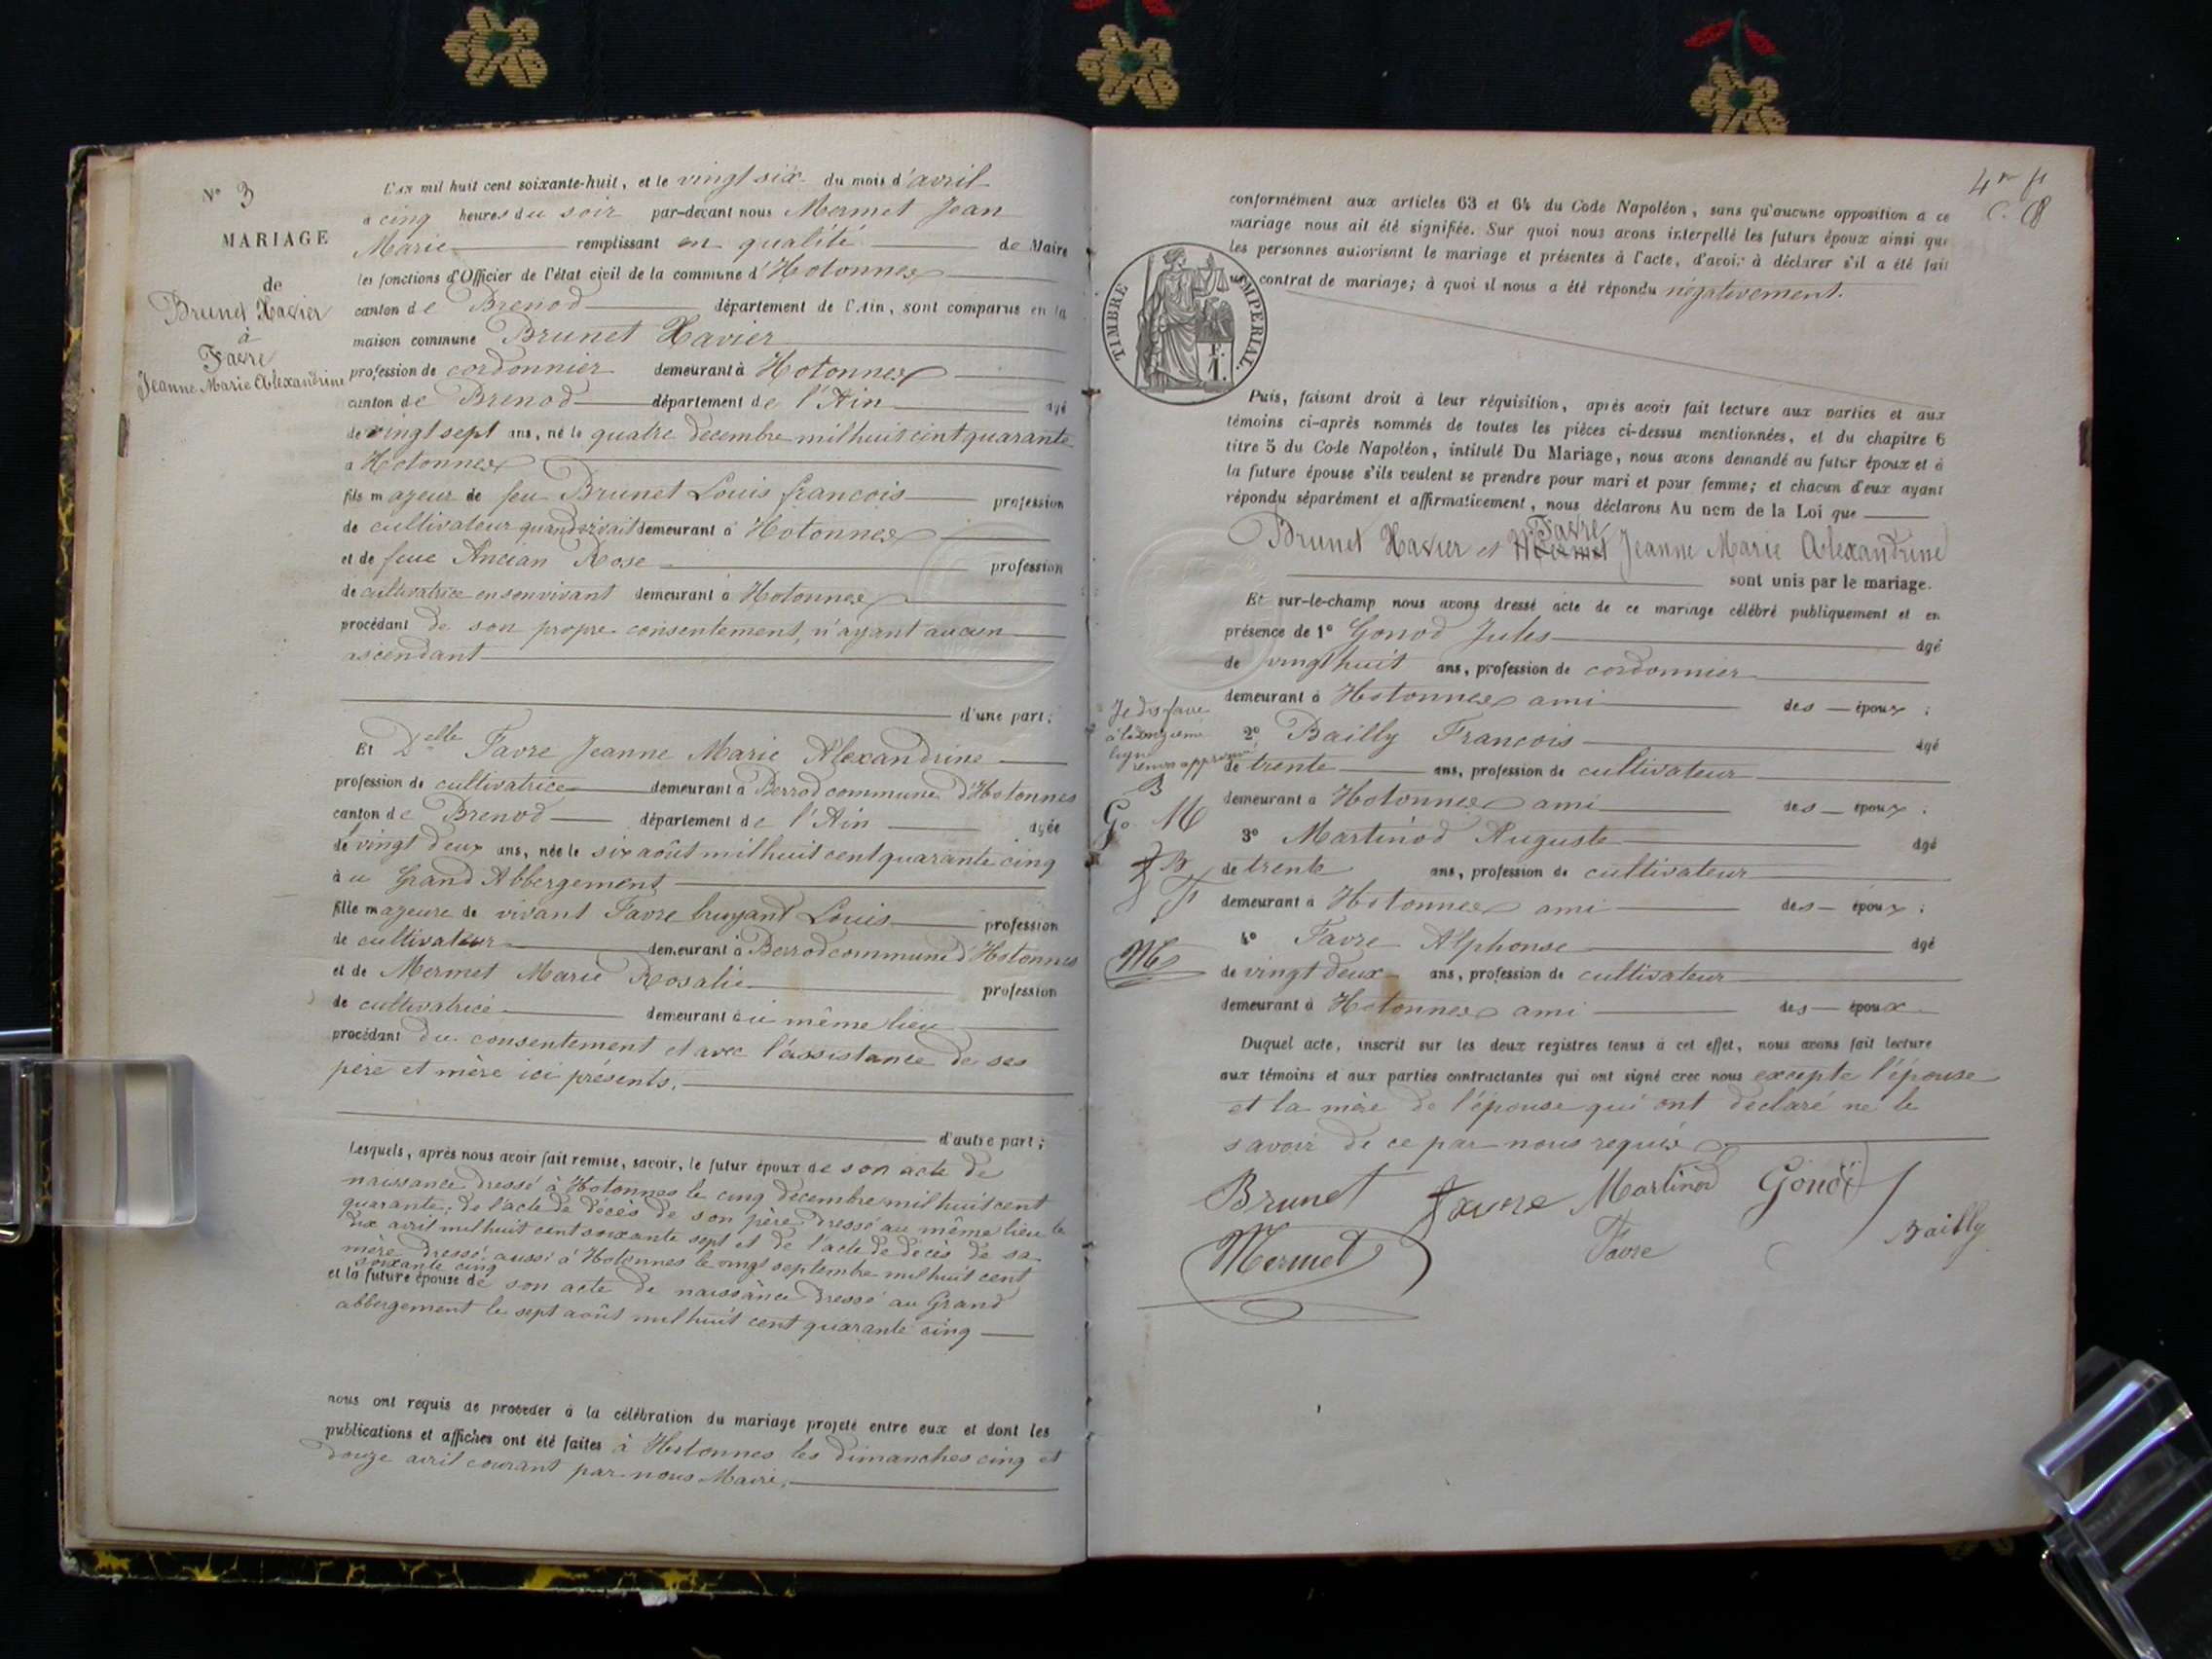 N° 3
MARIAGE
de
Brunet Xavier
à
Favre
Jeanne Marie Alexandrine
L'an mil huit cent soixante-huit, et le vingt six du mois d'avril
à cinq heures du soir par-devant nous Mermet Jean
Marie remplissant en qualité de Maire
les fonctions d'Officier de l'état civil de la commune d'Hotonnes
canton de Brenod département de l'Ain, sont comparus en la
maison commune Brunet Xavier
profession de cordonnier demeurant à Hotonnes
canton de Brenod département de l'Ain âgé
de vingt sept ans, né le quatre decembre mil huit cent quarante
à Hotonnes
fils majeur de feu Brunet Louis francois profession
de cultivateur quand vivait demeurant à Hotonnes
et de feue Ancian Rose profession
de cultivatrice en son vivant demeurant à Hotonnes
procédant de son propre consentement, n'ayant aucun
ascendant
d'une part;
Et Delle Favre Jeanne Marie Alexandrine
profession de cultivatrice demeurant à Berrod commune d'Hotonnes
canton de Brenod département de l'Ain agée
de vingt deux ans, née le six août mil huit cent quarante cinq
au Grand Abbergement
fille majeure de vivant Favre bruyant Louis profession
de cultivateur demeurant à Berrod commune d'Hotonnes
et de Mermet Marie Rosalie profession
de cultivatrice demeurant au même lieu
procédant du consentement et avec l'assistance de ses
père et mère ici présents.
d'autre part;
Lesquels, après nous avoir fait remise, savoir, le futur époux de son acte de
naissance dressé à Hotonnes le cinq decembre mil huit cent
quarante; de l'acte de décès de son père dressé au même lieu le
dix avril mil huit cent soixante sept et de l'acte de décès de sa
mère dressé aussi à Hotonnes le vingt septembre mil huit cent
soixante cinq
et la future épouse de son acte de naissance dressé au Grand
abbergement le sept août mil huit cent quarante cinq
nous ont requis de procéder à la célébration du mariage projeté entre eux et dont les
publications et affiches ont été faites à Hotonnes les dimanches cinq et
douze avril courant par nous Maire.
conformément aux articles 63 et 64 du Code Napoléon, sans qu'aucune opposition à ce
mariage nous ait été signifiée. Sur quoi nous avons interpellé les futurs époux ainsi que
les personnes autorisant le mariage et présentes à l'acte, d'avoir à déclarer s'il a été fait
contrat de mariage; à quoi il nous a été répondu négativement.
TIMBRE IMPERIAL
F.
1.
Puis, faisant droit à leur réquisition, après avoir fait lecture aux parties et aux
témoins ci-après nommés de toutes les pièces ci-dessus mentionnées, et du chapitre 6
titre 5 du Code Napoléon, intitulé Du Mariage, nous avons demandé au futur époux et à
la future épouse s'ils veulent se prendre pour mari et pour femme; et chacun d'eux ayant
répondu séparément et affirmativement, nous déclarons Au nom de la Loi que
Favre
Brunet Xavier et Mermet Jeanne Marie Alexandrine
sont unis par le mariage.
Et sur-le-champ nous avons dressé acte de ce mariage célébré publiquement et en
présence de 1° Gonod Jules âgé
de vingt huit ans, profession de cordonnier
demeurant à Hotonnes ami des époux;
2° Bailly Francois âgé
de trente ans, profession de cultivateur
demeurant à Hotonnes ami des époux;
3° Martinod Auguste âgé
de trente ans, profession de cultivateur
demeurant à Hotonnes ami des époux;
4° Favre Alphonse âgé
de vingt deux ans, profession de cultivateur
demeurant à Hotonnes ami des époux
Je dis favre
à la onzième
ligne
renvoi approuvé
B
G. M
B
M
Duquel acte, inscrit sur les deux registres tenus à cet effet, nous avons fait lecture
aux témoins et aux parties contractantes qui ont signé avec nous excepté l'épouse
et la mère de l'épouse qui ont déclaré ne le
savoir de ce par nous requis
Brunet Favre Martinod Gonod
Mermet Favre Bailly